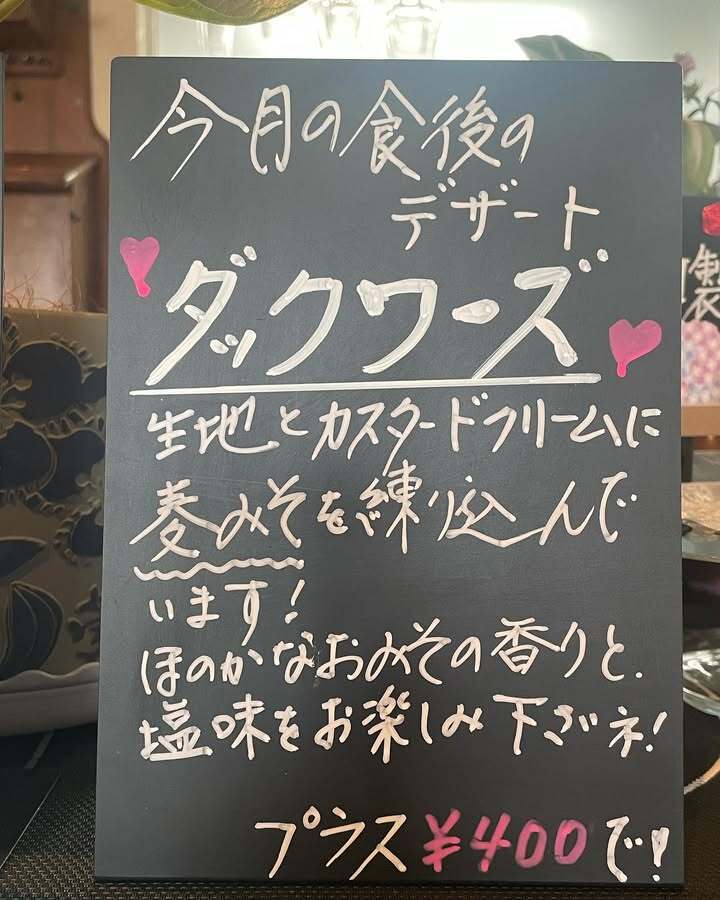 今月の食後の
デザート
ダックワーズ
生地とカスタードクリームに
麦みそを練り込んで
います!
ほのかなおみその香りと、
塩味をお楽しみ下さいネ!
プラス¥400で!
製